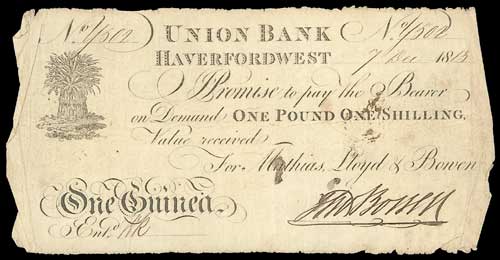 No. 1/502 UNION BANK No. 1/502
HAVERFORDWEST
7 Dec 1813
I Promise to pay the Bearer
on Demand ONE POUND ONE SHILLING,
Value received
For Mathias, Lloyd & Bowen
One Guinea.
Entd.